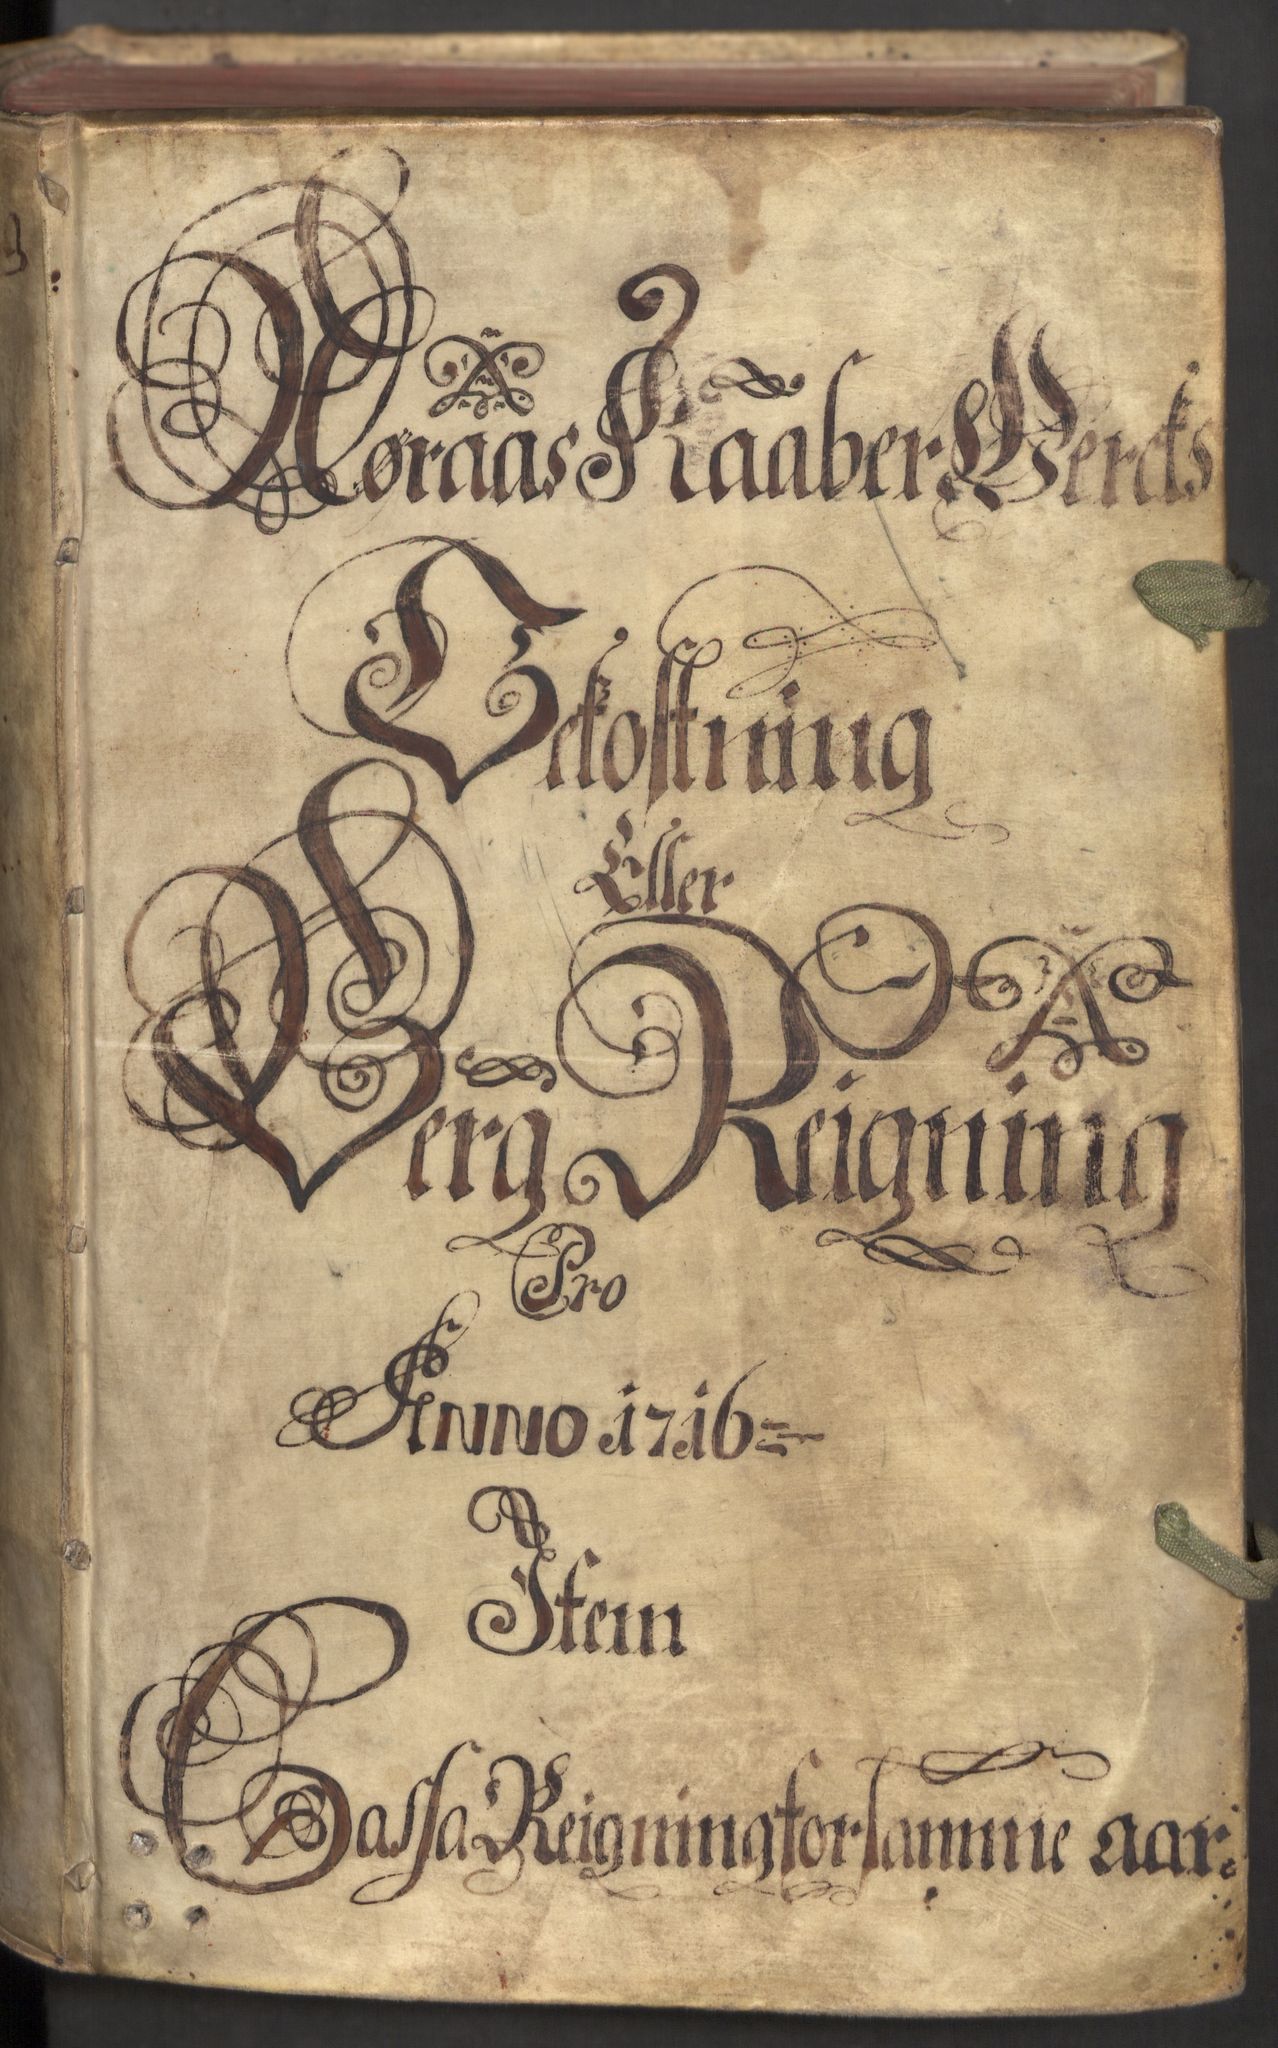 Røraas Kaaber Wercks
Bekostning
Eller
Berg Reigning
Pro
Anno 1716
Item
Cassa Reigning for samme aar.